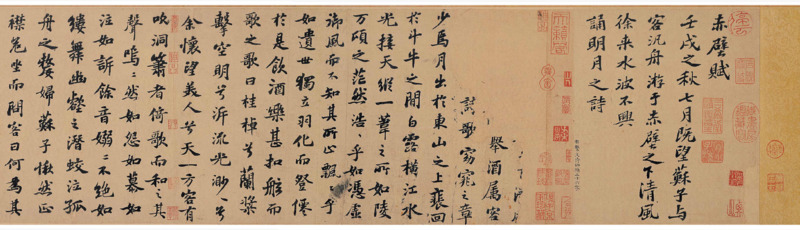 赤壁賦
壬戌之秋七月既望蘇子与
客汎舟游于赤壁之下清風
徐来水波不興
誦明月之詩
舉酒属客
歌窈窕之章
少焉月出於東山之上裵回
於斗牛之間白露橫江水
光接天縱一葦之所如陵
万頃之茫然浩〻乎如馮虛
御風而不知其所止飄〻乎
如遺世獨立羽化而登僊
於是飲酒樂甚扣舷而
歌之歌曰桂棹兮蘭槳
擊空明兮泝流光渺〻兮
余懷望美人兮天一方客有
吹洞簫者倚歌而和之其
聲嗚〻然如怨如慕如
泣如訴餘音嫋〻不絶如
縷舞幽壑之潛蛟泣孤
舟之嫠婦蘇子愀然正
襟危坐而問客曰何為其